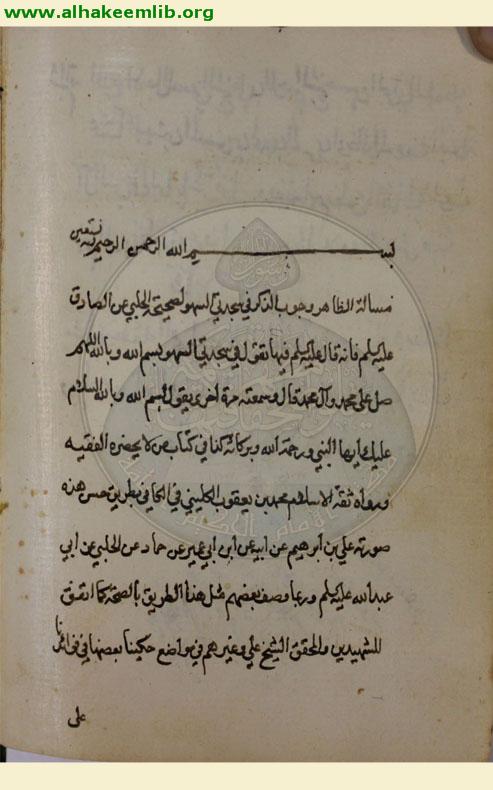 www.alhakeemlib.org
بسم الله الرحمن الرحيم وبه نستعين
مسالة الظاهر وجوب الذكر في سجدتي السهو لصحيحة الحلبي عن الصادق
عليه السلم فانه قال عليه السلم فيها تقول في سجدتي السهو بسم الله وبالله اللهم
صل على محمد وآل محمد قال وسمعته مرة اخرى يقول بسم الله وبالله السلام
عليك ايها النبي ورحمة الله وبركاته كذا في كتاب من لا يحضره الفقيه
ورواه ثقة الاسلام محمد بن يعقوب الكليني في الكافي بطريق حسن هذه
صورته علي بن ابرهيم عن ابيه عن ابن ابي عمير عن حماد عن الحلبي عن ابي
عبد الله عليه السلم وربما وصف بعضهم مثل هذا الطريق بالصحة كما اتفق
للشهيدين والمحقق الشيخ علي وغيرهم في مواضع حكينا بعضها في فوائدنا
على